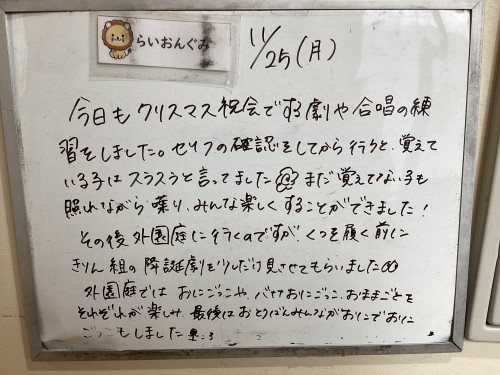 らいおんぐみ
11/25(月)
今日も クリスマス祝会でする劇や 合唱の練
習をしました。セリフの確認をしてから行うと、覚えて
いる子はスラスラと言ってました まだ覚えてない子も
照れながら喋り、みんな楽しくすることができました!
その後 外園庭に行くのですが、くつを履く前に
きりん組の降誕劇を少しだけ見させてもらいました
外園庭では おにごっこや、バナナおにごっこ、おままごとを
それぞれが楽しみ、最後は おとりばんみんながおにでおに
ごっこもしました